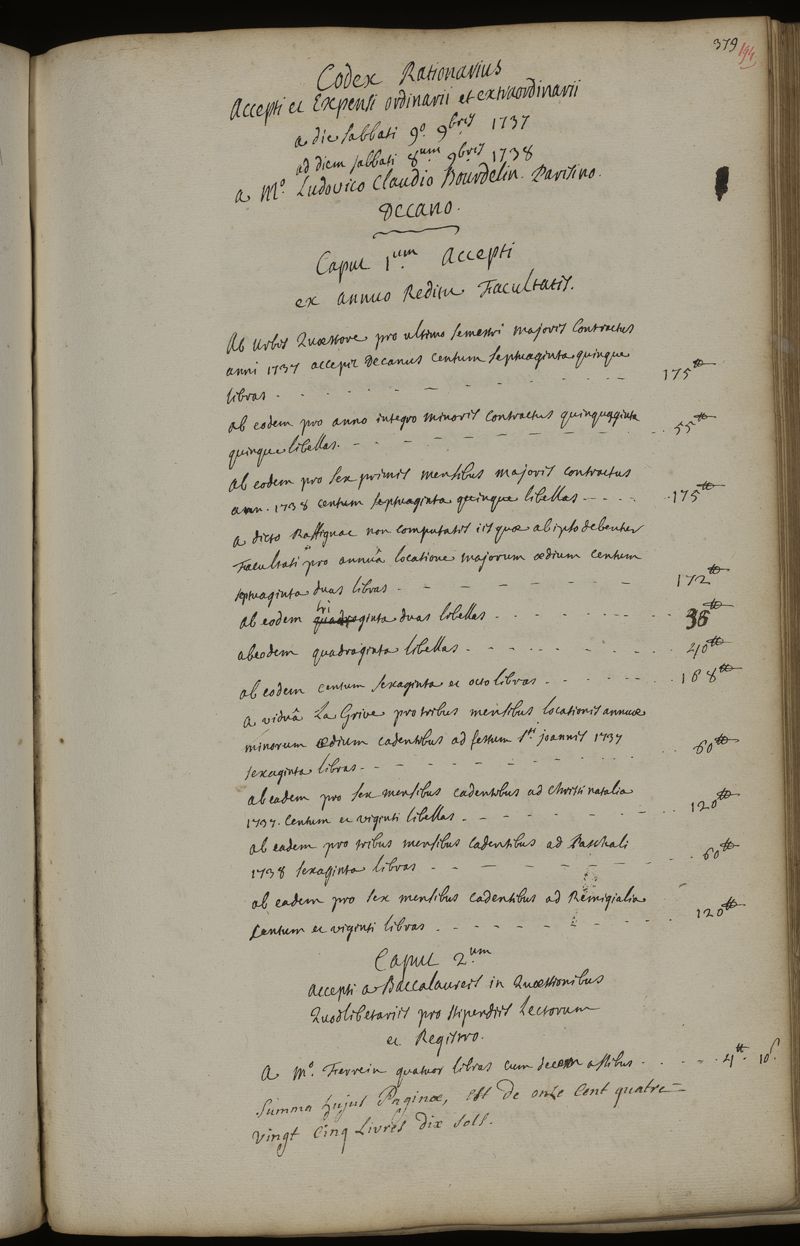 379
194
Codex Rationarius
Accepti et Expensi ordinarii et extraordinarii
a die sabbati 9º 9bris 1737
ad diem sabbati 8um 9bris 1738
a Mº. Ludovico Claudio Bourdelin. Parisino.
Decano.
Caput 1um Accepti
ex annuo Reditu Facultatis.
Ab Urbis Quæstore pro ultimo semestri majoris Contractus
anni 1737 accepit Decanus Centum septuaginta quinque
libras - - - 175tt
ab eodem pro anno integro minoris Contractus quinquaginta
quinque libellas. - - - 55tt
ab eodem pro sex primis mensibus majoris contractus
ann. 1738 centum septuaginta quinque libellas - - - 175tt
a dicto Rassignac non computatis iis quæ ab ipso debentur
Facultati pro annuâ locatione majorum ædium centum
septuaginta duas libras - - - 172tt
ab eodem triginta duas libellas - - - 36tt
ab eodem quadraginta libellas - - - 40tt
ab eodem centum sexaginta et octo libras - - - 168tt
a viduâ La Grive pro tribus mensibus locationis annuæ
minorum ædium cadentibus ad festum Sti joannis 1737
sexaginta libras - - - 60tt
ab eadem pro sex mensibus cadentibus ad Christi natalia
1737. Centum et viginti libellas - - - 120tt
ab eadem pro tribus mensibus cadentibus ad Paschali
1738 sexaginta libras - - - 60tt
ab eadem pro sex mensibus cadentibus ad Remigialia
Centum et viginti libras - - - 120tt
Caput 2um
Accepti a Baccalaureis in Quæstionibus
Quodlibetariis pro stipendiis Lectorum
et Registro.
A Mº. Ferrein quatuor libras cum decem assibus - - - 4tt. 10s.
Summa hujus Paginæ, est de onze Cent quatre-
vingt Cinq Livres dix sols.